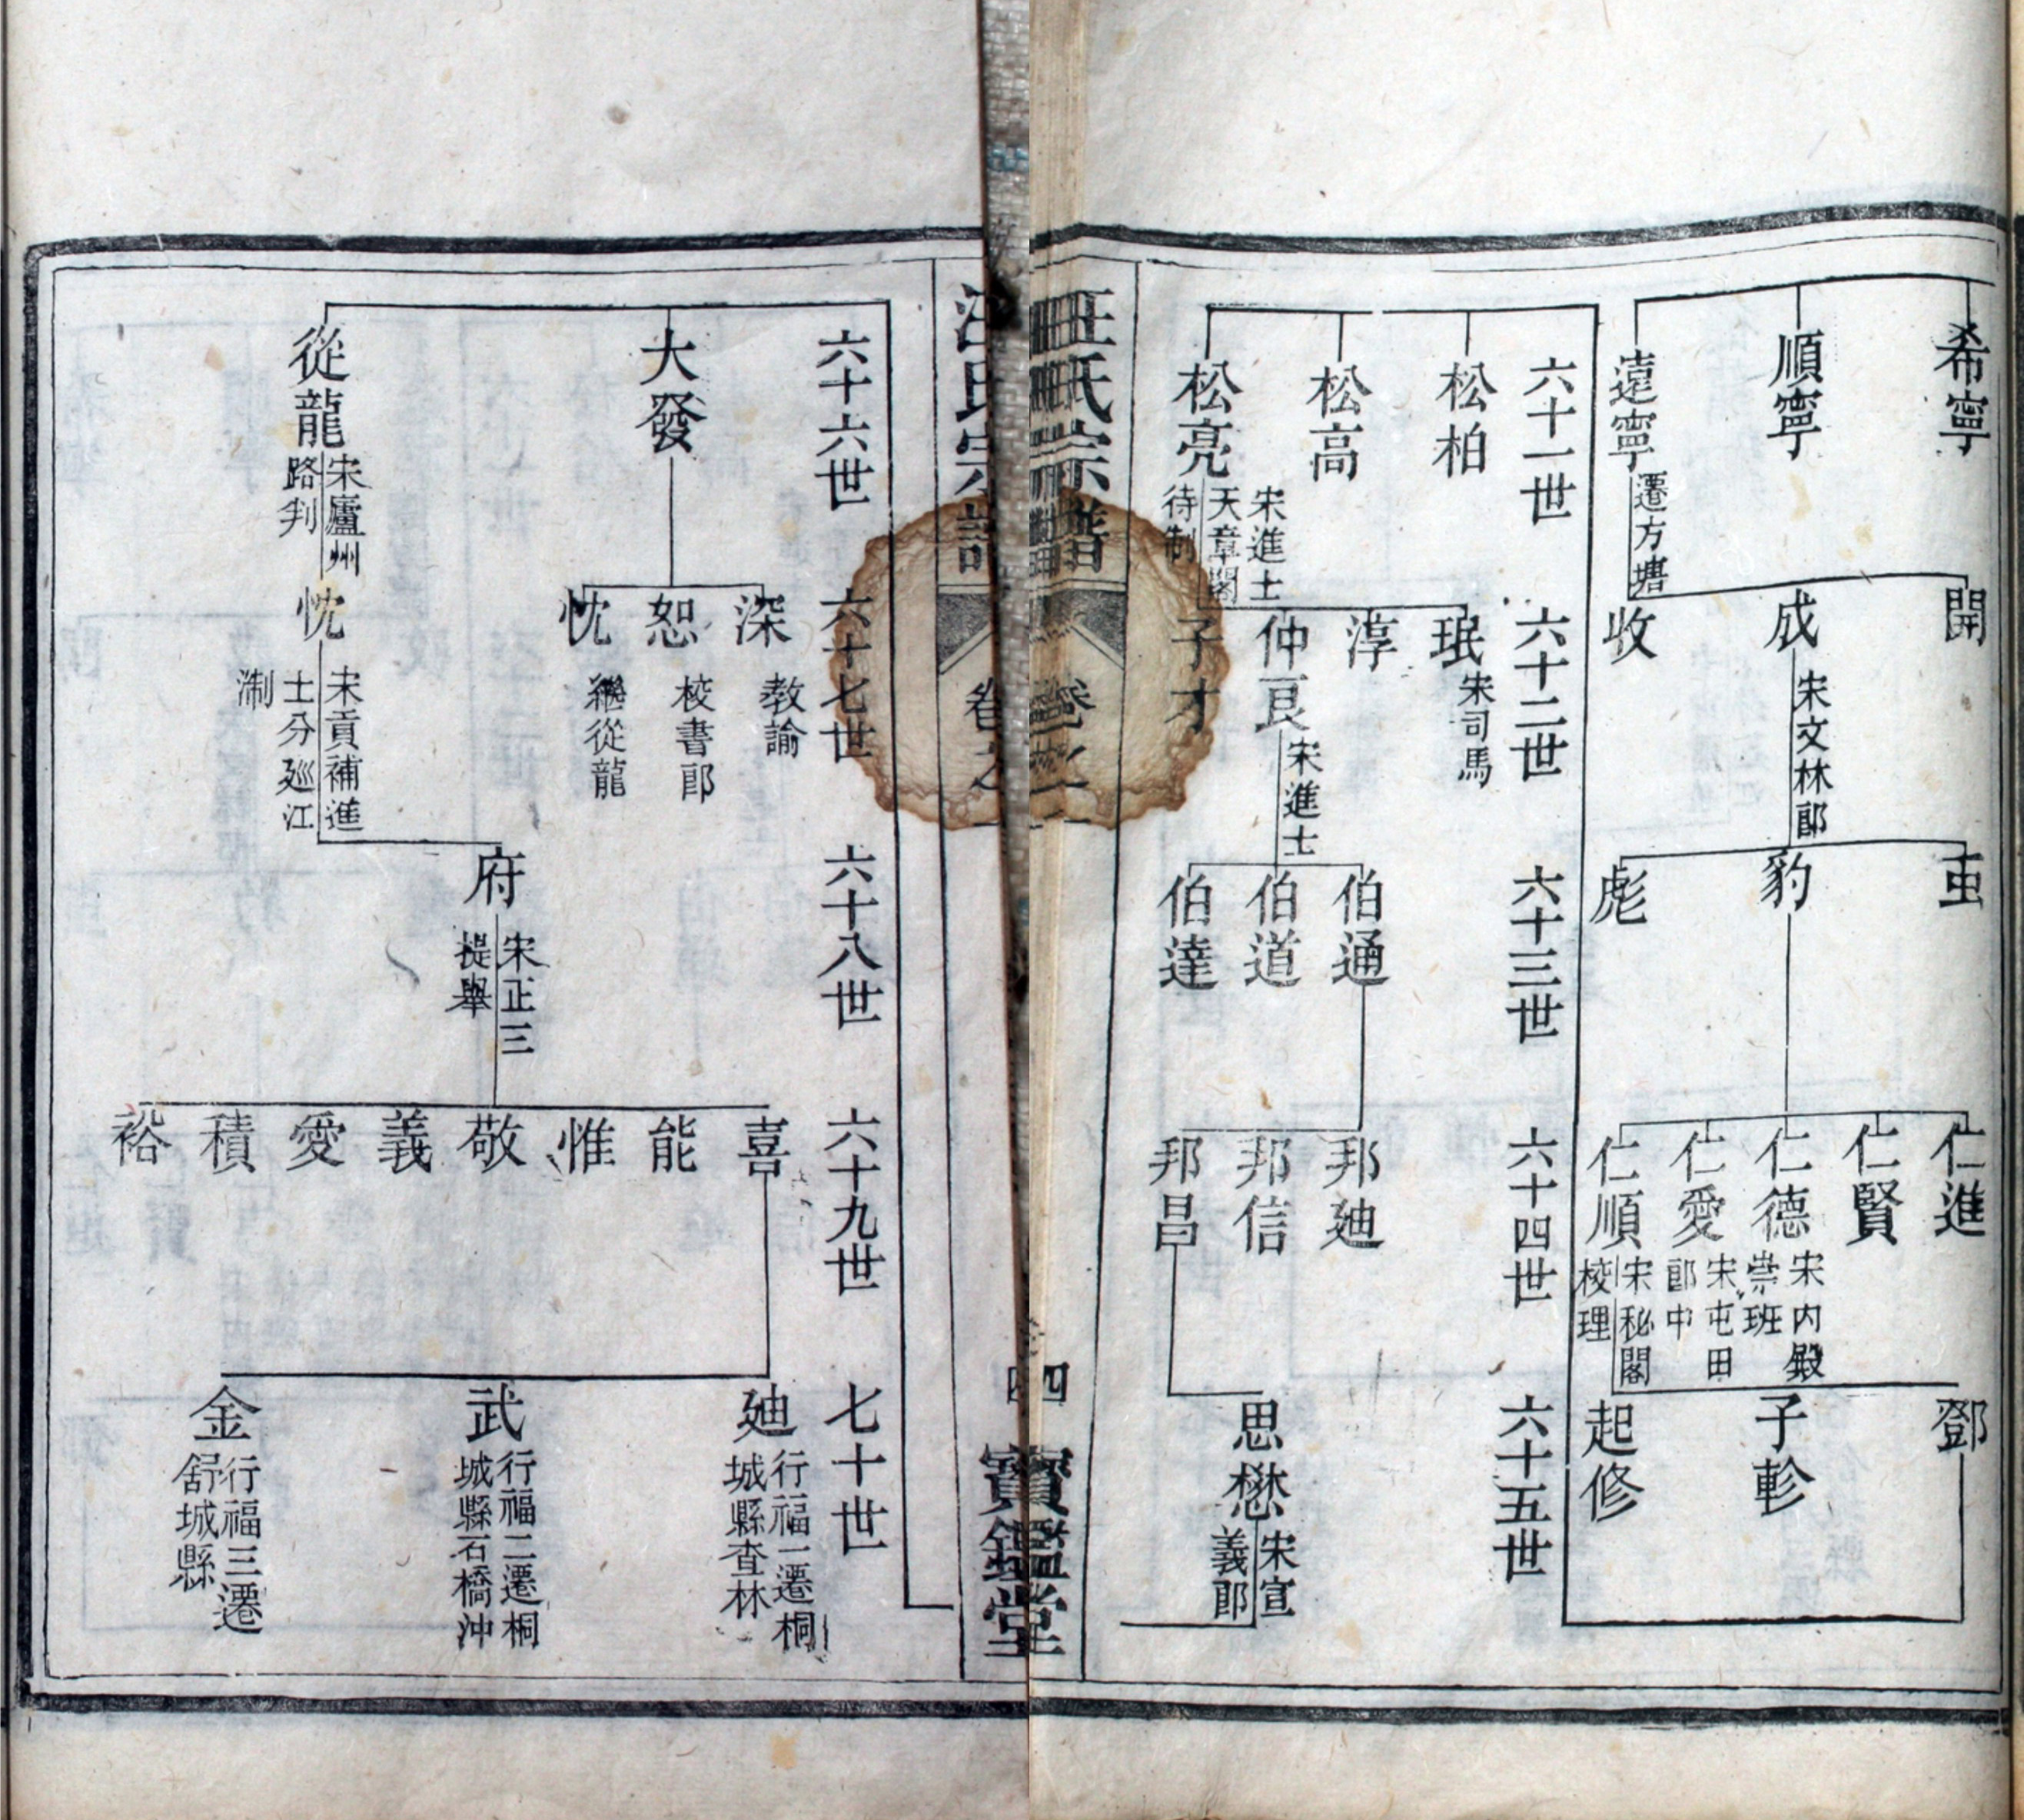 希寧
順寧
遠寧
遷方塘
開
成
宋文林郎
收
豹
彪
仁進
仁賢
仁德
宋內殿
崇班
仁愛
宋屯田
郎中
仁順
宋秘閣
校理
鄧
子軫
起修
六十一世
松柏
松高
松亮
宋進士
天章閣
待制
六十二世
珉
宋司馬
淳
仲良
宋進士
子才
六十三世
伯通
伯道
伯達
六十四世
邦廸
邦信
邦昌
六十五世
思懋
宋宣
義郎
汪氏宗譜
卷之
四
寶鑑堂
六十六世
大發
從龍
宋廬州
路判
六十七世
深
教諭
恕
校書郎
忱
繼從龍
忱
宋貢補進
士分廵江
淛
六十八世
府
宋正三
提舉
六十九世
喜
能
惟
敬
義
愛
積
裕
七十世
廸
行福一遷桐
城縣查林
武
行福二遷桐
城縣石橋沖
金
行福三遷
舒城縣